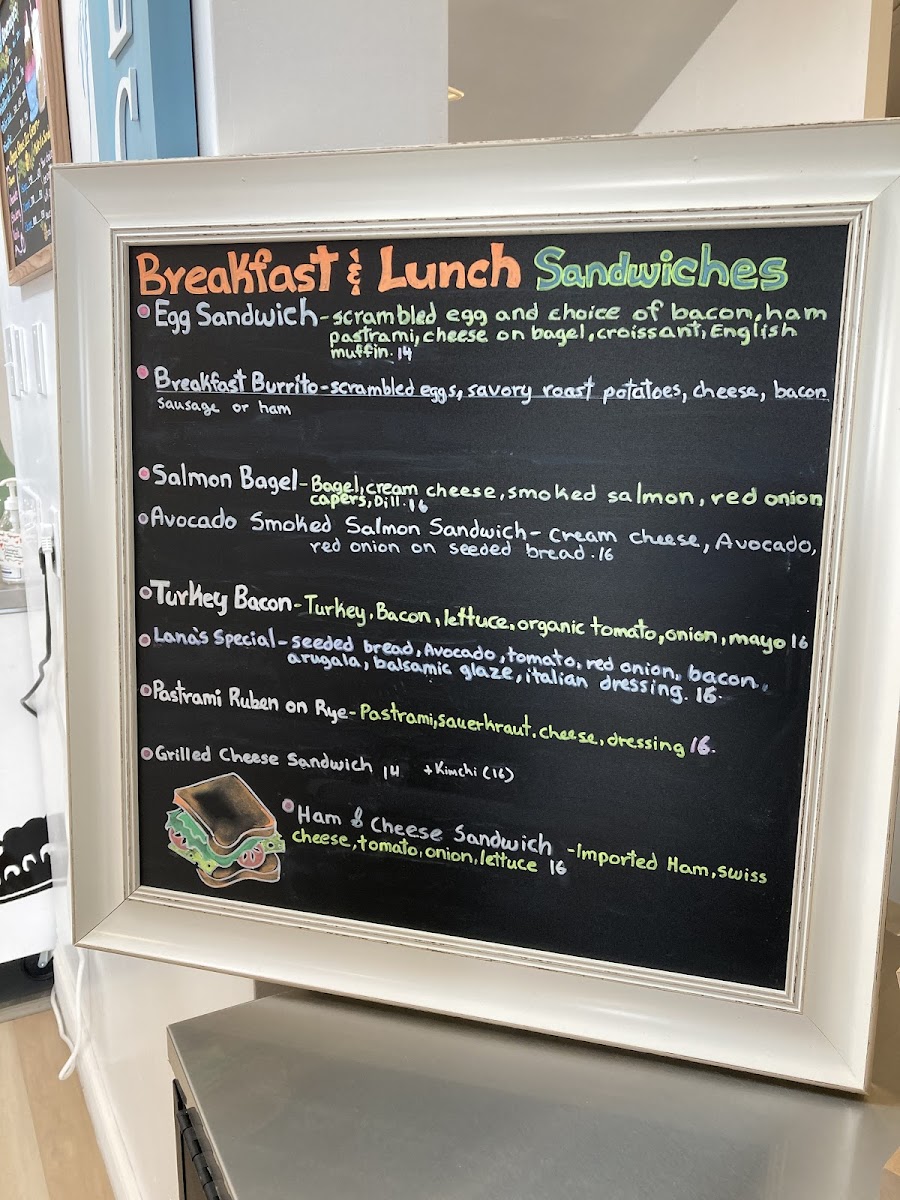 Breakfast & Lunch Sandwiches
Egg Sandwich-scrambled egg and choice of bacon, ham
pastrami, cheese on bagel, croissant, English
muffin. 14
Breakfast Burrito-scrambled eggs, savory roast potatoes, cheese, bacon
sausage or ham
Salmon Bagel-Bagel, cream cheese, smoked salmon, red onion
capers, Dill. 16
Avocado Smoked Salmon Sandwich- cream cheese, Avocado,
red onion on seeded bread. 16
Turkey Bacon-Turkey, Bacon, lettuce, organic tomato, onion, mayo 16
Lana's Special-seeded bread, Avocado, tomato, red onion, bacon,
arugala, balsamic glaze, italian dressing. 16.
Pastrami Ruben on Rye-Pastrami, sauerkraut, cheese, dressing 16.
Grilled Cheese Sandwich 14 +Kimchi (16)
Ham & Cheese Sandwich -Imported Ham, swiss
cheese, tomato, onion, lettuce 16